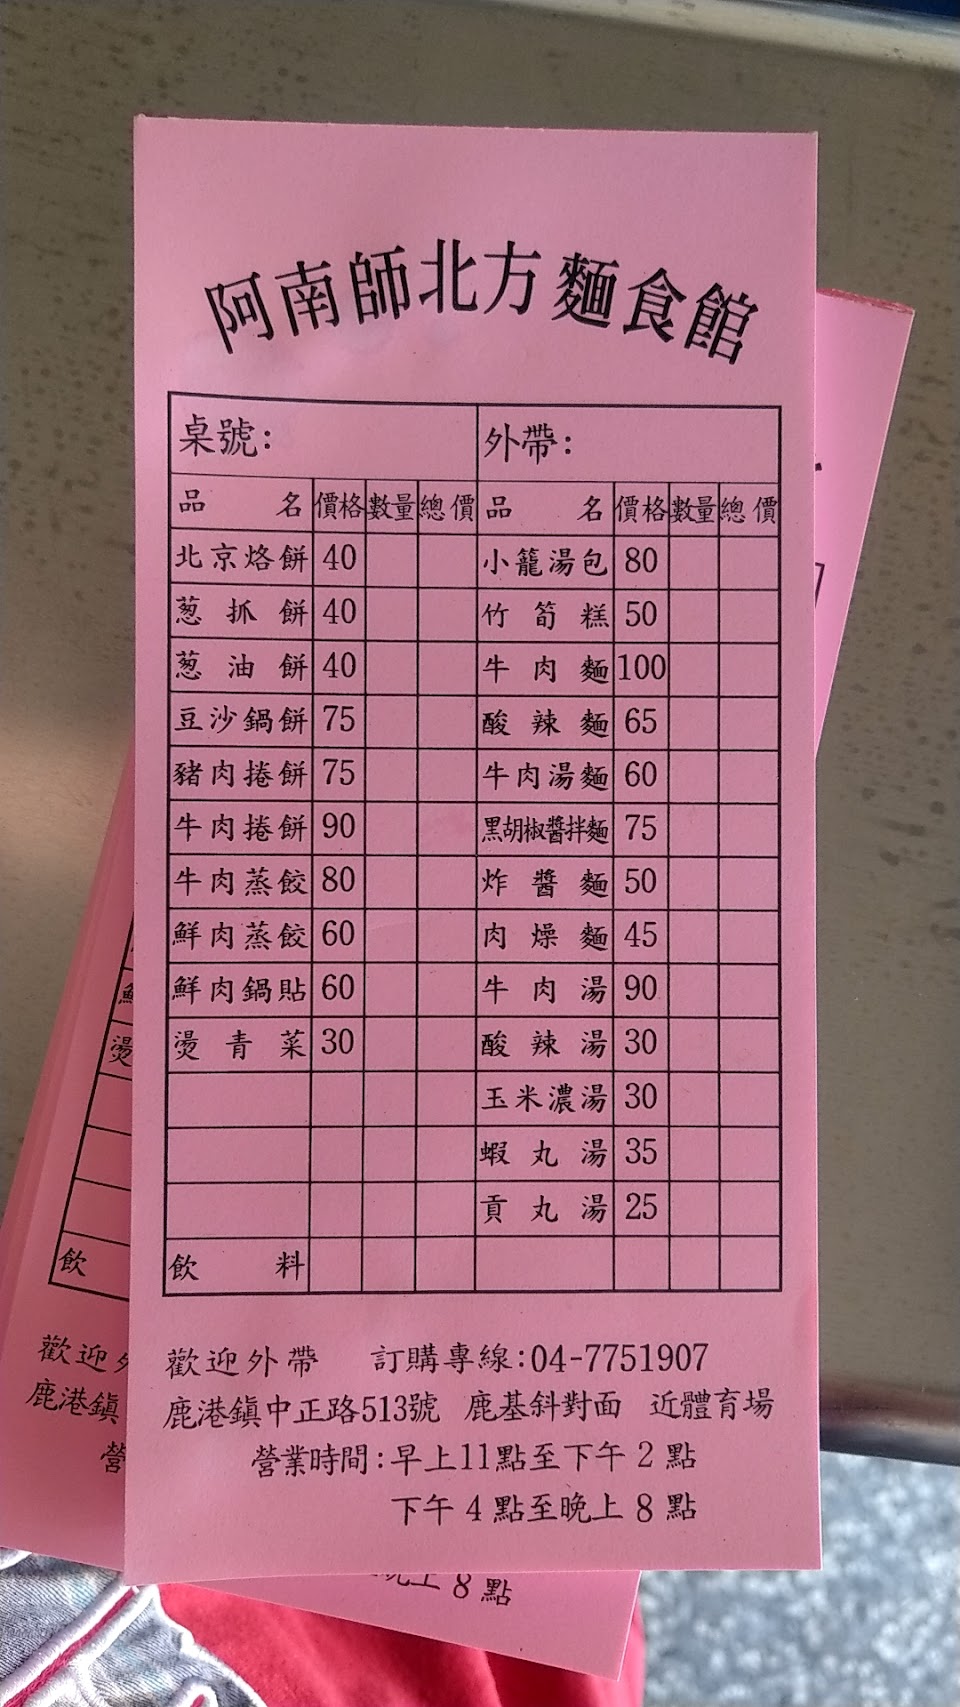 阿南師北方麵食館
桌號: 外帶:
品名 價格 數量 總價 品名 價格 數量 總價
北京烙餅 40 小籠湯包 80
葱抓餅 40 竹筍糕 50
葱油餅 40 牛肉麵 100
豆沙鍋餅 75 酸辣麵 65
豬肉捲餅 75 牛肉湯麵 60
牛肉捲餅 90 黑胡椒醬拌麵 75
牛肉蒸餃 80 炸醬麵 50
鮮肉蒸餃 60 肉燥麵 45
鮮肉鍋貼 60 牛肉湯 90
燙青菜 30 酸辣湯 30
玉米濃湯 30
蝦丸湯 35
貢丸湯 25
飲料
歡迎外帶 訂購專線:04-7751907
鹿港鎮中正路513號 鹿基斜對面 近體育場
營業時間:早上11點至下午2點
下午4點至晚上8點
燙
飲
歡迎外
鹿港鎮
營
晚上8點